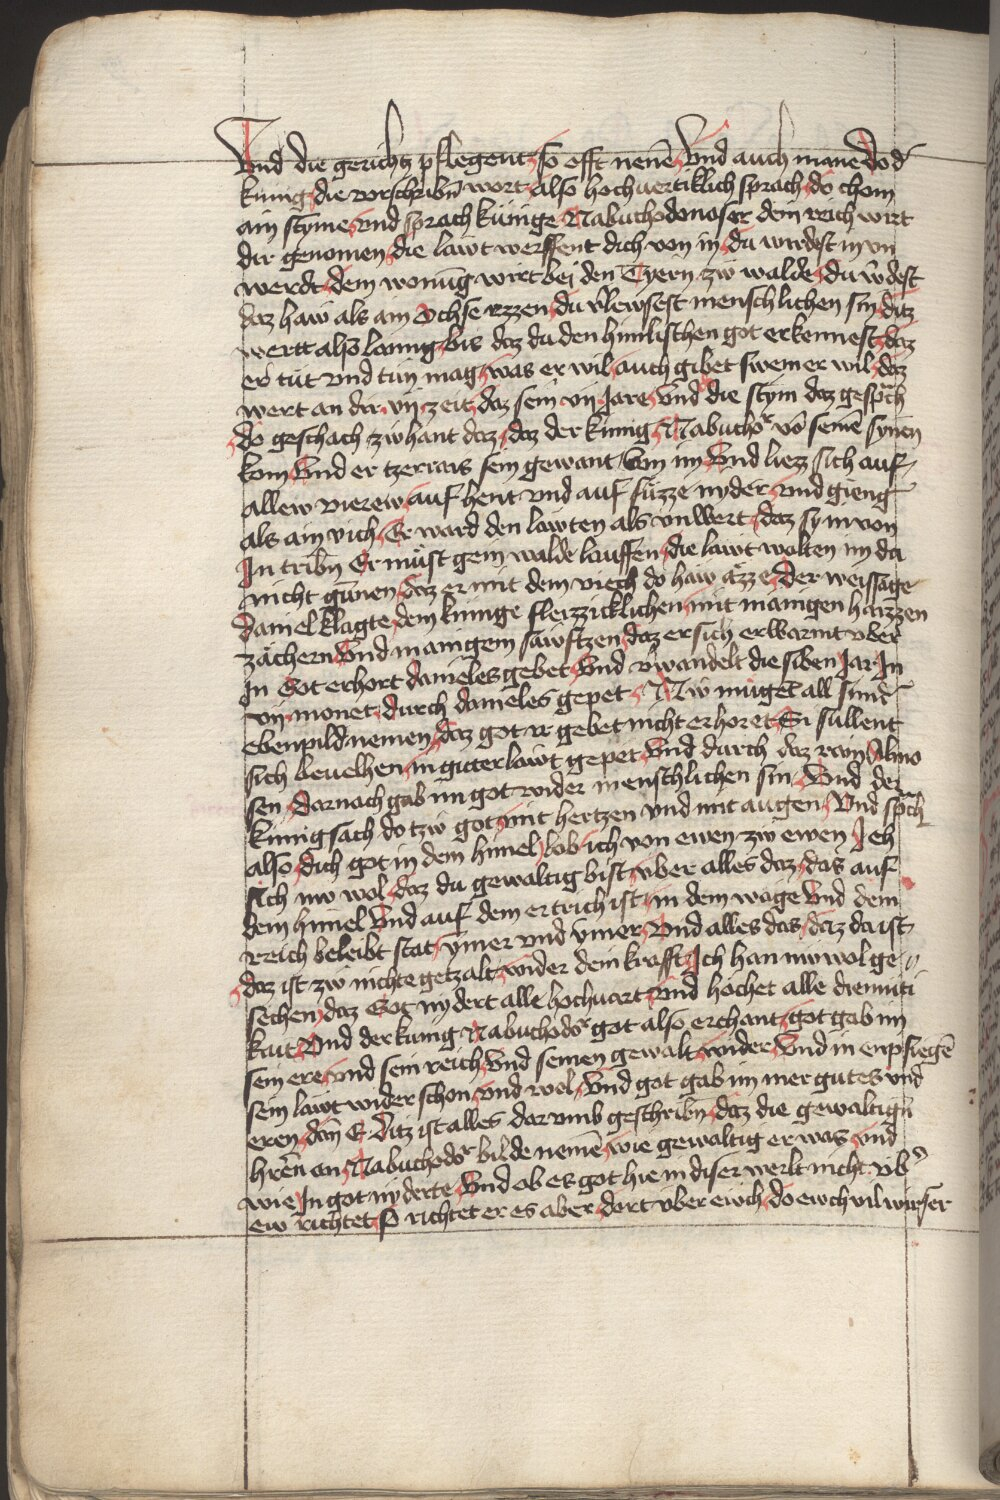 Vnd die gerichtz pflegent so offt nenē Vnd auch mane do d̕
kunig die vorschribn̄ wort also hochuertiklich sprach do chom
ain styme vnd sprach künige Nabuchodonosor dein reich wirt
dir genomen die läwt werffent dich von in du wirdest in vn
werdt dem wonūg wirt bei den Tyern zw walde du w̕dest
daz haw als ain Ochse ezzen du v̕lewsest menschlichen sin daz
wert also lanng bis daz du den himlischen got erkennest daz
er tüt vnd tün mag was er wil auch gibet swem er wil daz
wert an dir vij zeit daz sein vij Jare Vnd die stym daz gesp̄ch
do geschach zw hant daz daz der kunig Nabucho͛ vō seinē synen
kom Vnd er tzerrais sein gewant von im Vnd liez sich auf
allew vierew auf hent vnd auf füzze nyder vnd gieng
als ain vich Er ward den läwten als vnwert daz sy in von
In tribn̄ Er müst gein walde lauffen die läwt wolten im da
nicht gūnen daz er mit dem viech do haw äzze der weissage
daniel klagte dem kunige fleizzicklichen mit manigen haizzen
zächern Vnd manigem säwftzen daz er sich erbarmt vber
In Got erhort danieles gebet Vnd v̕wandelt die siben Jar In
vij monet durch danieles gepet Nw mügēt all sund̕
ebenpild nemen daz got ir gebet nicht erhoret Si süllent
sich beuelhen in guter läwt gepet Vnd durch daz rain Almo
sen darnach gab im got wider menschlichen sin Vnd der
kunig sach do tzw got mit hertzen vnd mit augen Vnd sp̄ch
also dich got in dem himel lob ich von ewen zw ewen Ich
sich nw wol daz du gewaltig bist vber alles daz das auf
dem himel Vnd auf dem ertrich ist in dem wage Vnd dein
reich beleibt stät ymer vnd ymer Vnd alles das daz da ist
daz ist zw nichte getzalt wider dein krafft Ich han nw wol ge
sechen daz Got nydert alle hochuart Vnd höchet alle diemüti
kait Vnd der kunig Nabuchodo͛ got also erchant got gab im
sein ere vnd sein reich Vnd seinen gewalt wider Vnd in enpfiegē
sein läwt wider schon vnd wol Vnd got gab im mer gutes vnd̕
eren dan̄ E Ditz ist alles dar vmb geschribn̄ daz die gewaltign̄
hren̄ an Nabuchodo͛ bilde nemē wie gewaltig er was vnd
wie In got nyderte Vnd ob es got hie in diser werlt nicht vb̕
ew richtet so richtet er es aber dort vber ewch do ewch vil wirser